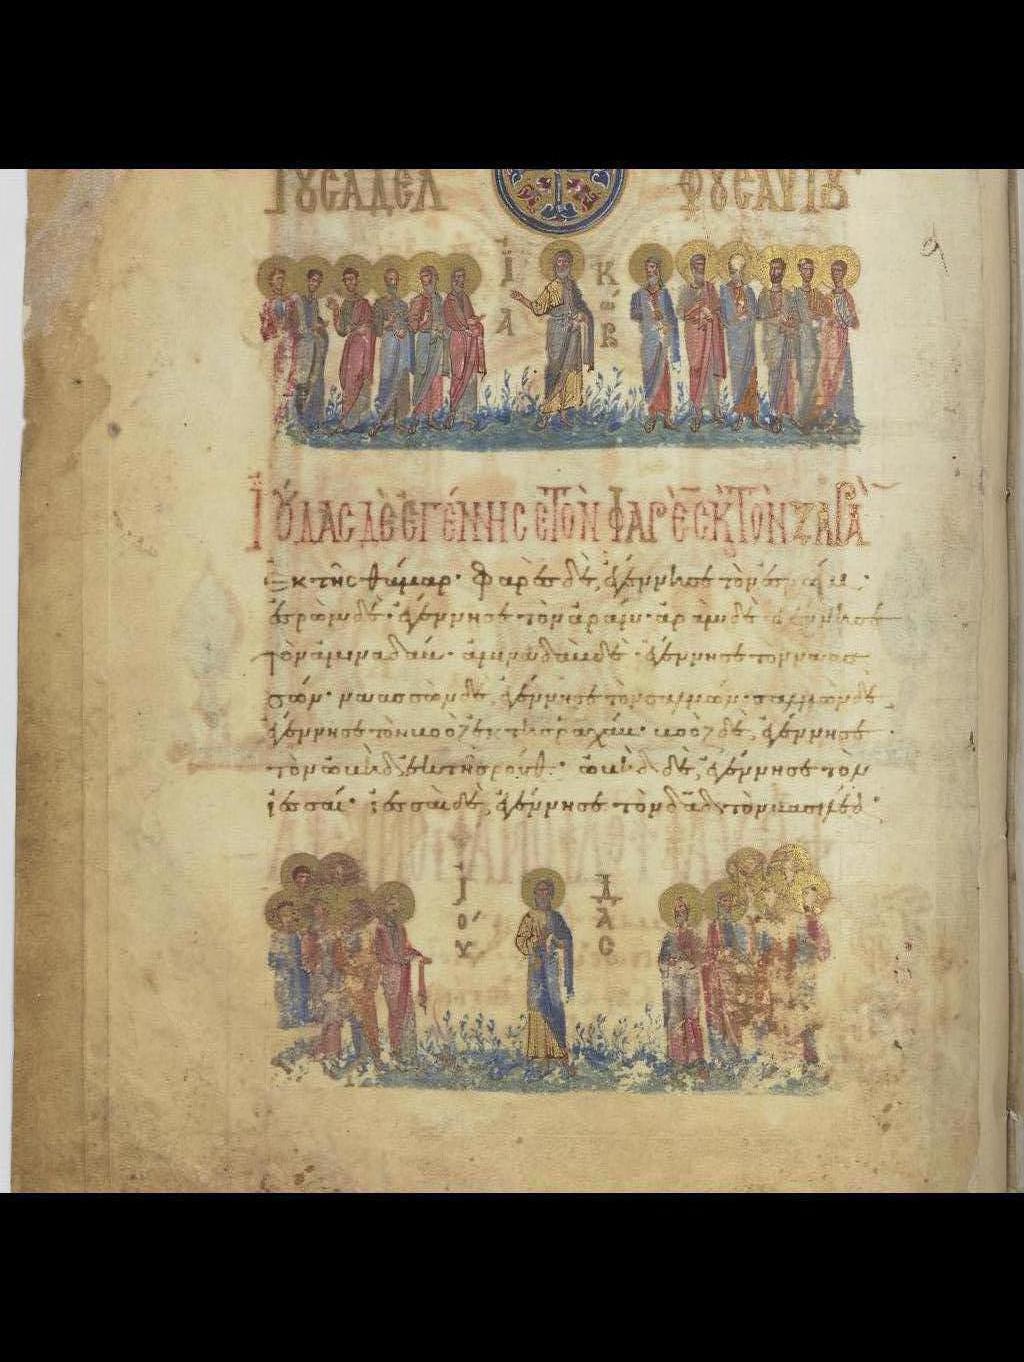 ΤΟΥΣ ΑΔΕΛΦΟΥΣ ΑΥΤΟΥ
ΙΑΚΩΒ
ἸΟΎΔΑΣ ΔῈ ἘΓΈΝΝΗΣΕ ΤῸΝ ΦΑΡῈΣ Κ(ΑΙ) ΤῸΝ ΖΑΡᾺ
Ἐκ τῆς θάμαρ· Φαρὲς δὲ, ἐγέννησε τὸν ἐσρώμ·
ἐσρὼμ δὲ ἐγέννησε τὸν ἀράμ· ἀρὰμ δὲ ἐγέννησε
τὸν ἀμιναδάμ· ἀμιναδὰμ δὲ ἐγέννησε τὸν ναασ
σών· ναασσὼν δὲ, ἐγέννησε τὸν σαλμών· σαλμὼν δὲ
ἐγέννησε τὸν βοὸζ ἐκ τῆς ῥαχάβ· βοὸζ δὲ, ἐγέννησε
τὸν ὠβὴδ ἐκ τῆς ῥούθ· ὠβὴδ δὲ, ἐγέννησε τὸν
ἰεσσαί· ἰεσσαὶ δὲ, ἐγέννησε τὸν δαδ τὸν βασιλέα·
ἸΟΎΔΑΣ